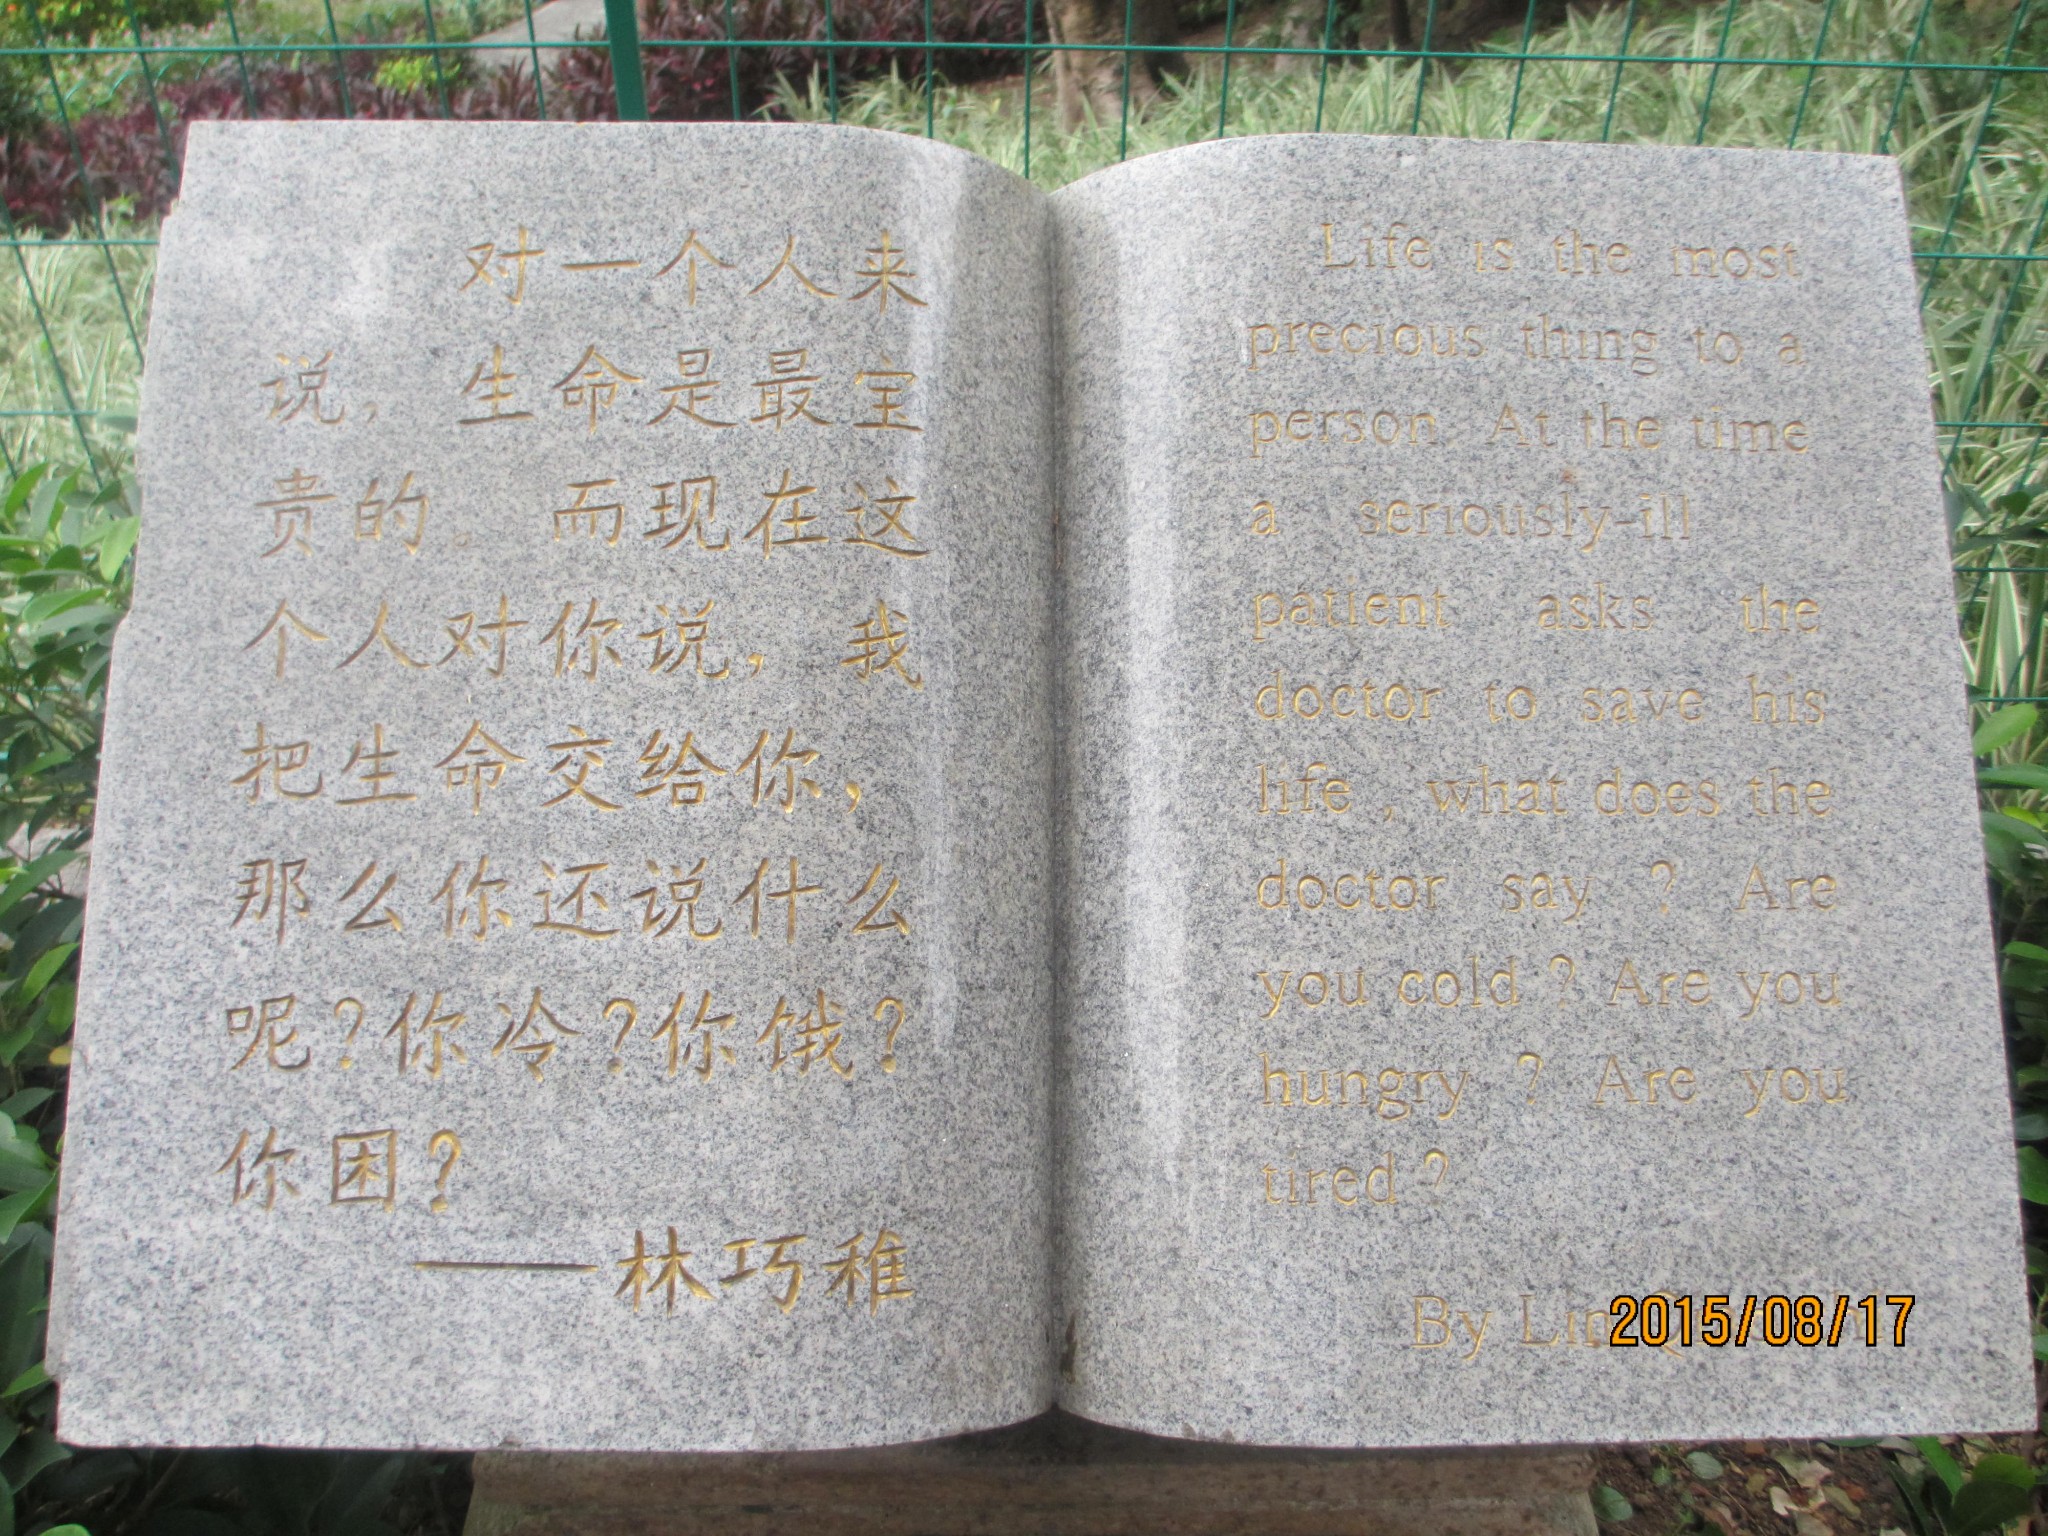 对一个人来
说，生命是最宝
贵的。而现在这
个人对你说，我
把生命交给你，
那么你还说什么
呢?你冷?你饿?
你困?
——林巧稚
Life is the most
precious thing to a
person. At the time
a seriously-ill
patient asks the
doctor to save his
life , what does the
doctor say ? Are
you cold ? Are you
hungry ? Are you
tired ?
By Lin
2015/08/17